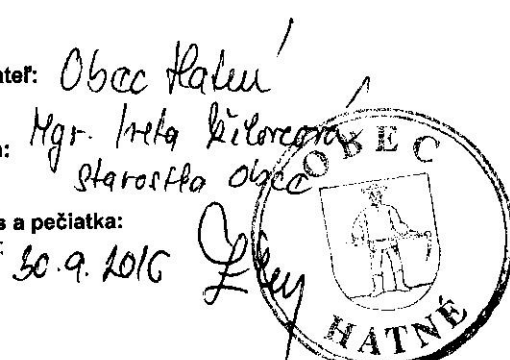 ateľ: Obec Hatné
: Mgr. Iveta
starostka obce
s a pečiatka:
30.9.2016
OBEC
HATNÉ